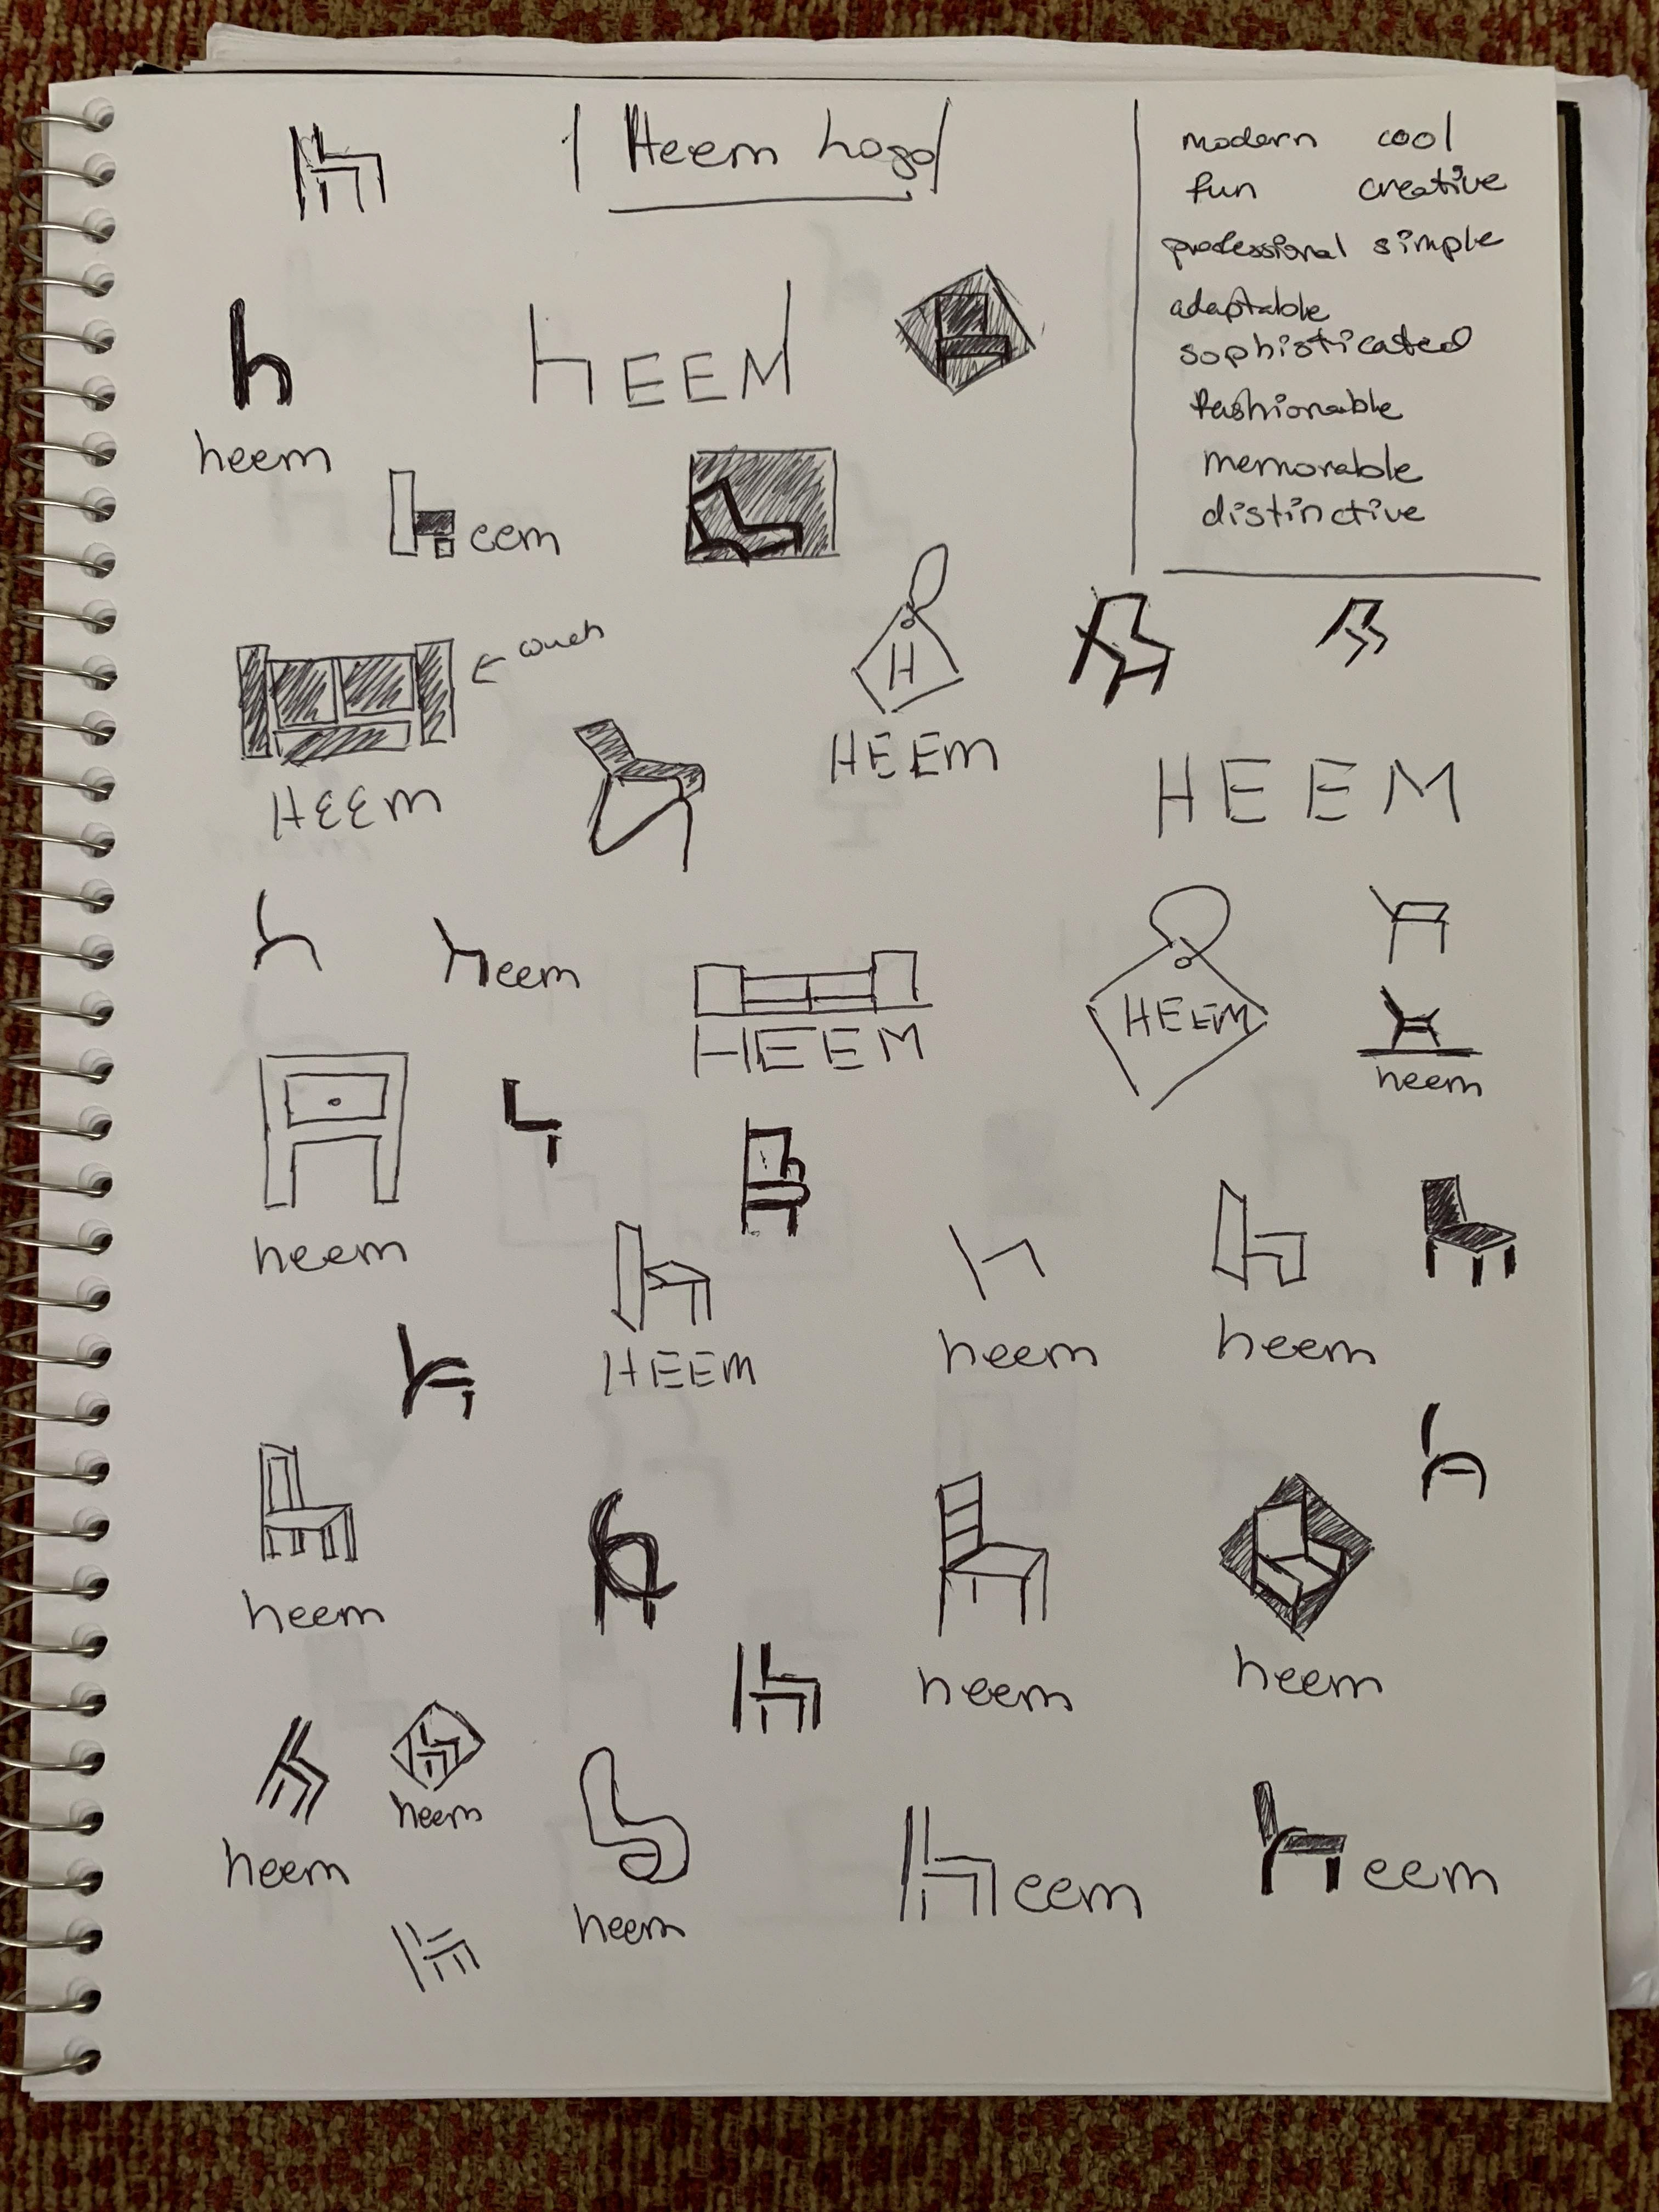 Heem Logo
modern cool
fun creative
professional simple
adaptable
sophisticated
fashionable
memorable
distinctive
h
heem
hEEM
heem
couch
HEEM
H
HEEM
HEEM
heem
HEEM
HEEM
heem
heem
HEEM
heem
heem
heem
heem
heem
heem
heem
heem
heem
heem